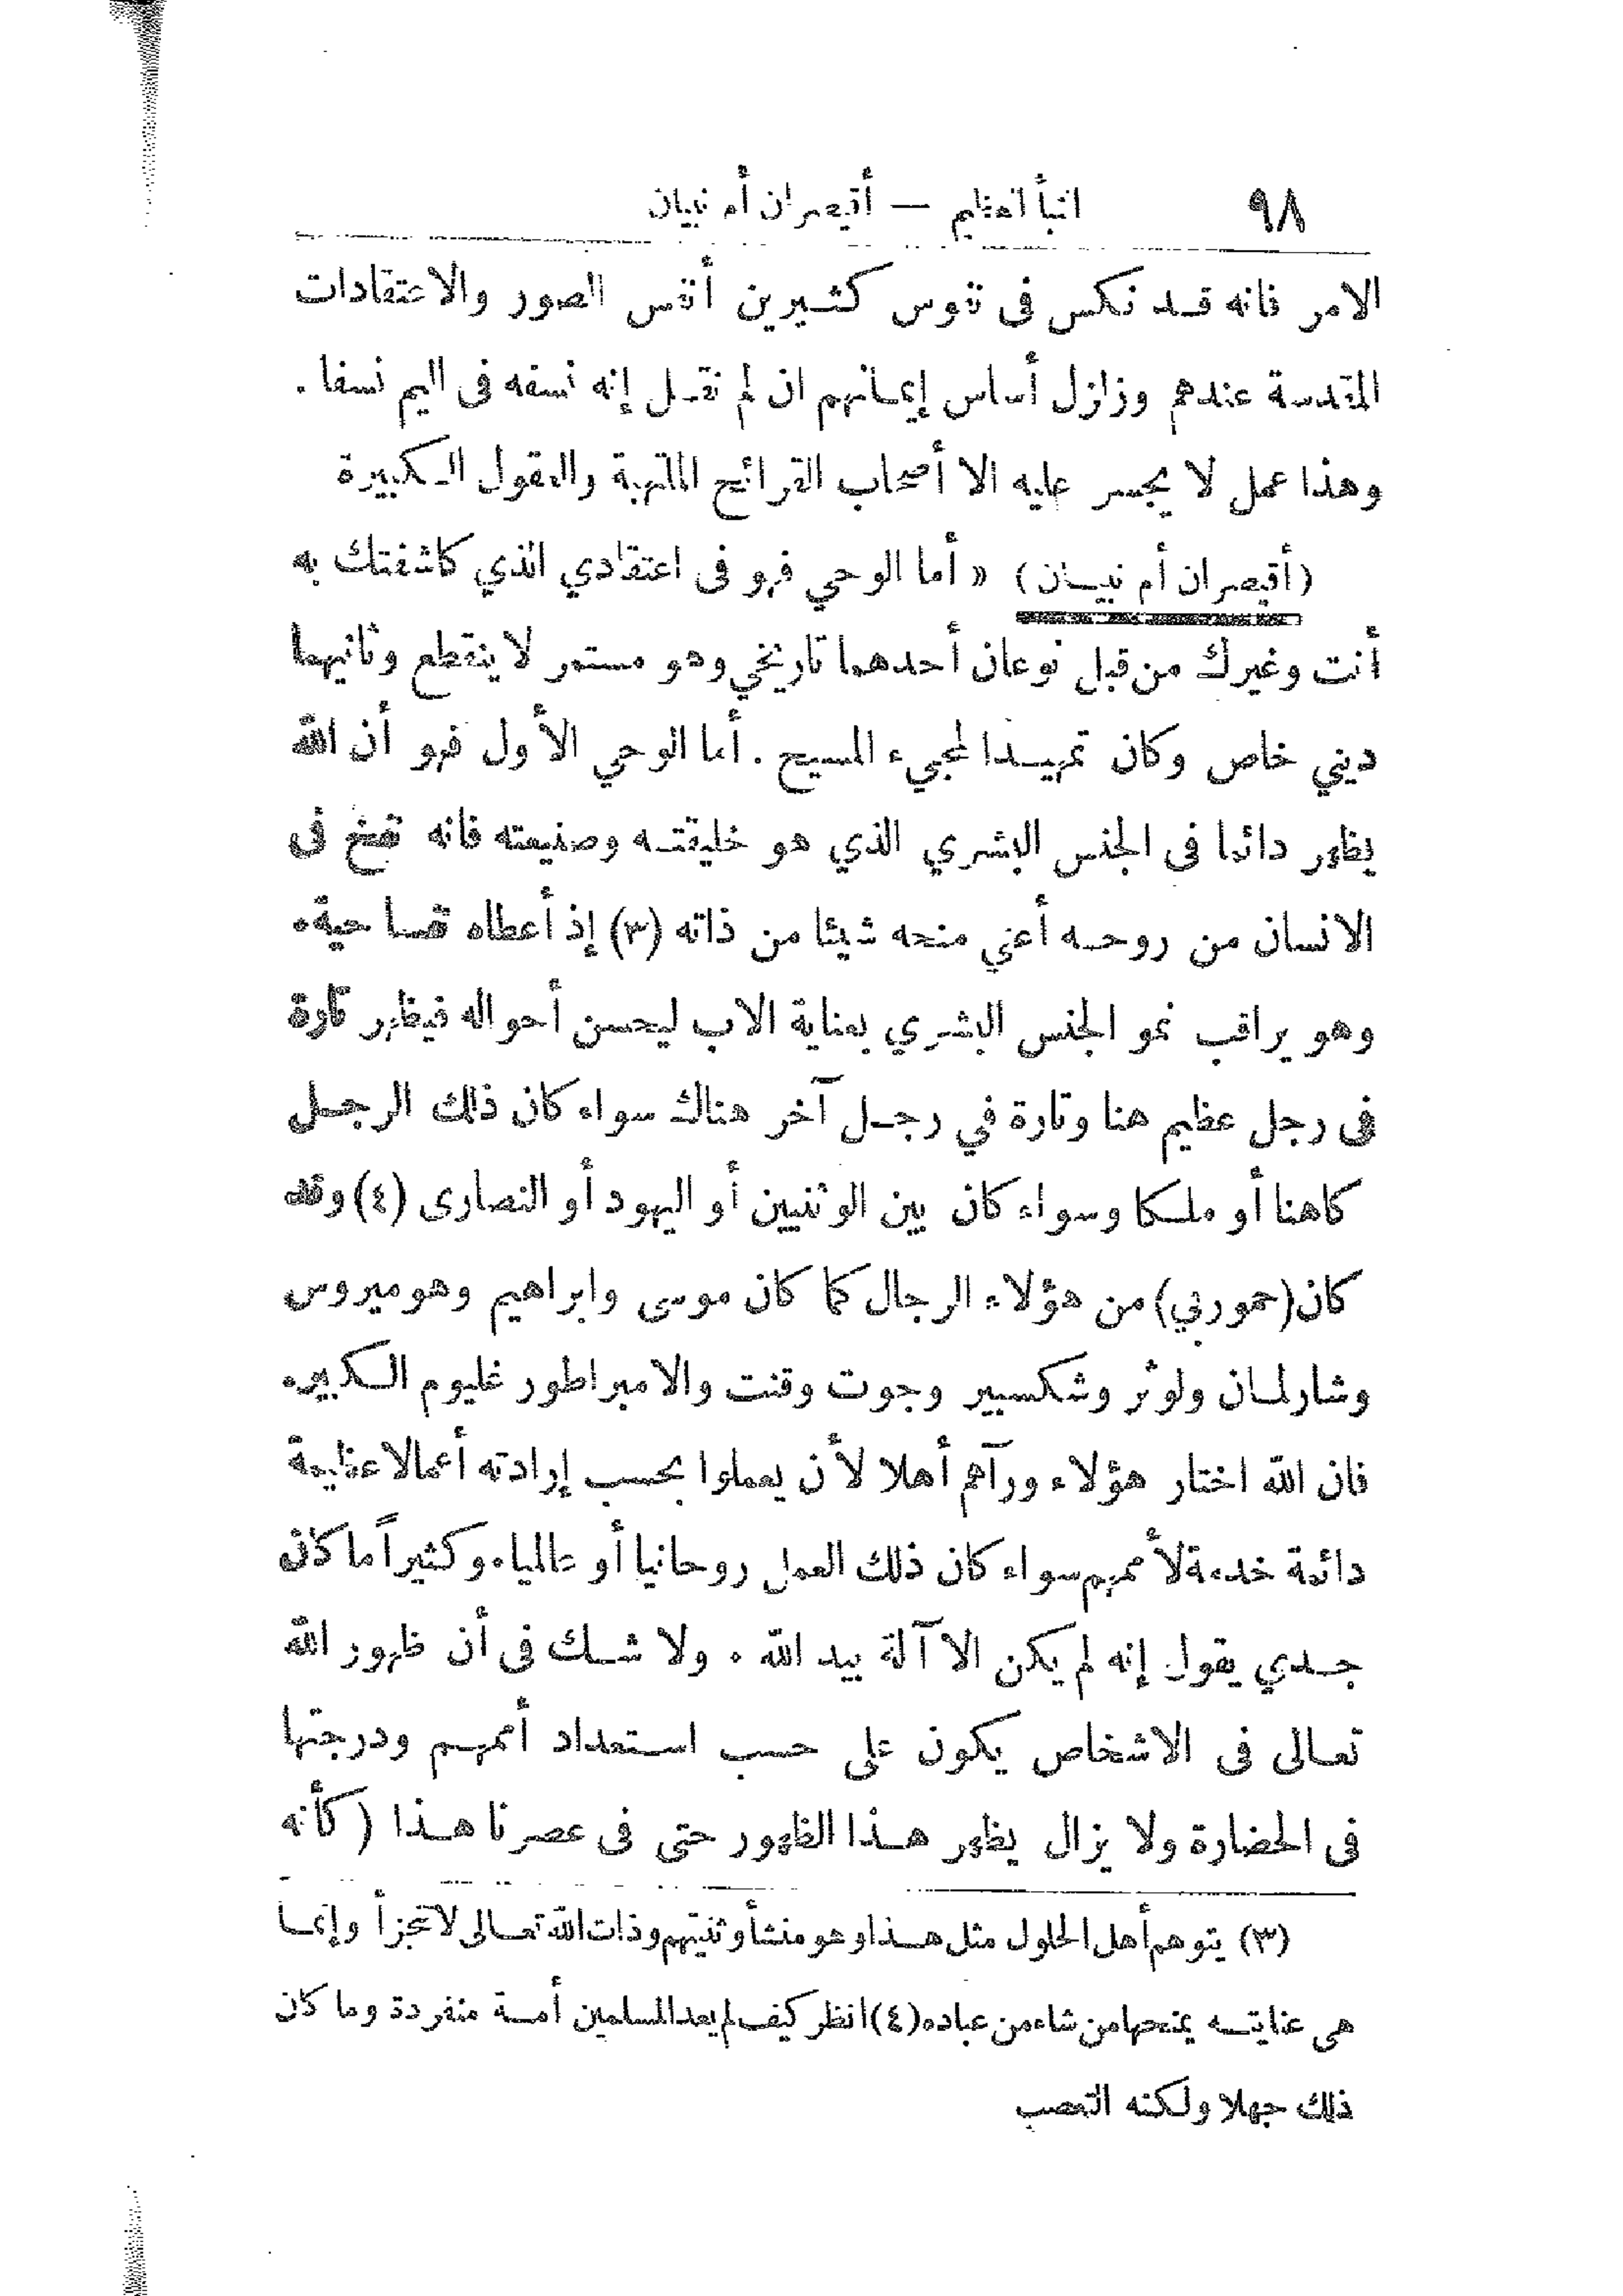 ٩٨ النبأ العظيم — أقيصران أم نبيان
الامر فانه قد نكس فى نفوس كثيرين أنفس الصور والاعتقادات
المقدسة عندهم وزلزل أساس إيمانهم ان لم نقل إنه نسفه فى اليم نسفا .
وهذا عمل لا يجسر عليه الا أصحاب القرائح الملتهبة والعقول الكبيرة
(أقيصران أم نبيان) « أما الوحي فهو فى اعتقادي الذي كاشفتك به
أنت وغيرك من قبل نوعان أحدهما تاريخي وهو مستمر لا ينقطع وثانيهما
ديني خاص وكان تمهيدا لمجيء المسيح . أما الوحي الأول فهو أن الله
يظهر دائما فى الجنس البشري الذي هو خليقته وصنيعته فانه نفخ فى
الانسان من روحه أعني منحه شيئا من ذاته (٣) إذ أعطاه نفسا حية.
وهو يراقب نمو الجنس البشري بعناية الاب ليحسن أحواله فيظهر تارة
فى رجل عظيم هنا وتارة في رجل آخر هناك سواء كان ذلك الرجل
كاهنا أو ملكا وسواء كان بين الوثنيين أو اليهود أو النصارى (٤) وقد
كان (حموربي) من هؤلاء الرجال كما كان موسى وابراهيم وهوميروس
وشارلمان ولوثر وشكسبير وجوت وقنت والامبراطور غليوم الكبير.
فان الله اختار هؤلاء ورآهم أهلا لأن يعملوا بحسب إرادته أعمالا عظيمة
دائمة خدمة لأممهم سواء كان ذلك العمل روحانيا أو عالميا. وكثيراً ما كان
جدي يقول إنه لم يكن الا آلة بيد الله . ولا شك فى أن ظهور الله
تعالى فى الاشخاص يكون على حسب استعداد أممهم ودرجتها
فى الحضارة ولا يزال يظهر هذا الظهور حتى فى عصرنا هذا ( كأنه
(٣) يتوهم أهل الحلول مثل هذا وهو منشأ وثنيتهم وذات الله تعالى لا تتجزأ وإنما
هى عنايته يمنحها من شاء من عباده (٤) انظر كيف لم يعد المسلمين أمة منفردة وما كان
ذلك جهلا ولكنه التعصب